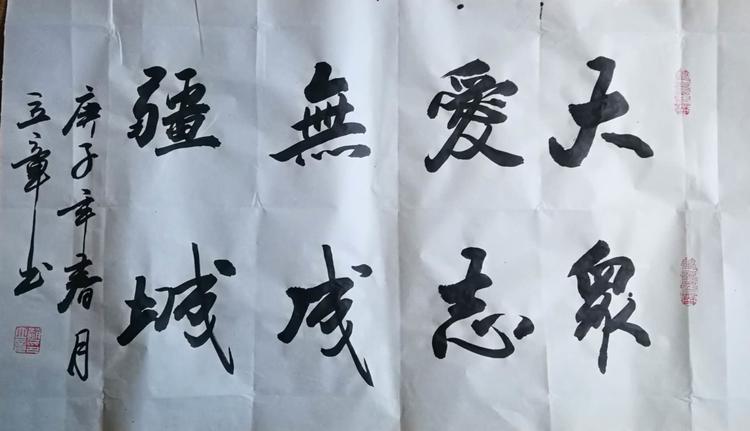 大愛無疆
眾志成城
庚子年春月
立章书